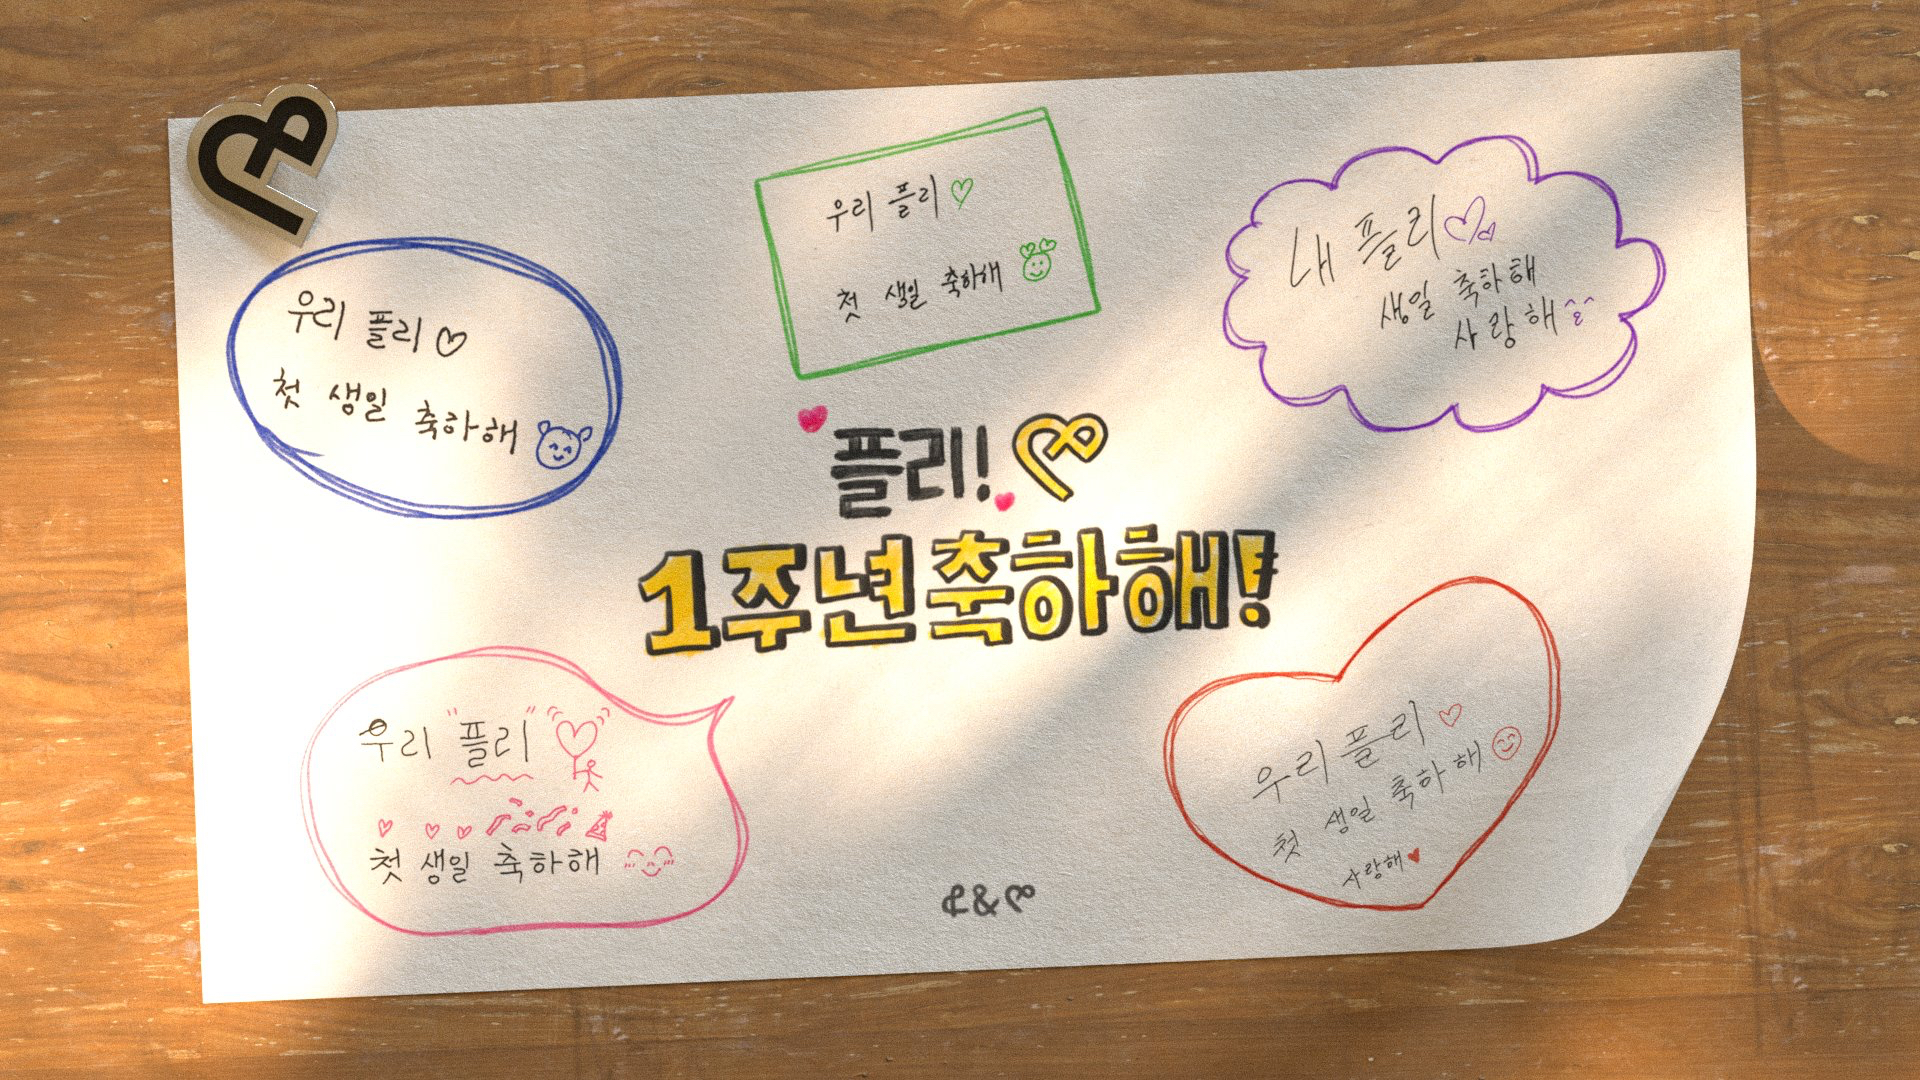 우리 플리♡
첫 생일 축하해
우리 플리♡
첫 생일 축하해
내 플리♡♡
생일 축하해
사랑해^^
플리!
1주년 축하해!
우리 "플리"
첫 생일 축하해
우리 플리♡
첫 생일 축하해
사랑해♥
&